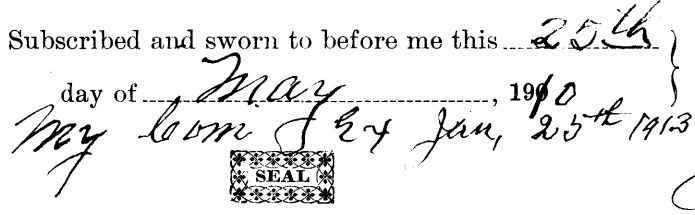 Subscribed and sworn to before me this 25th
day of May, 1910
My Com Ex Jan, 25th 1913
SEAL